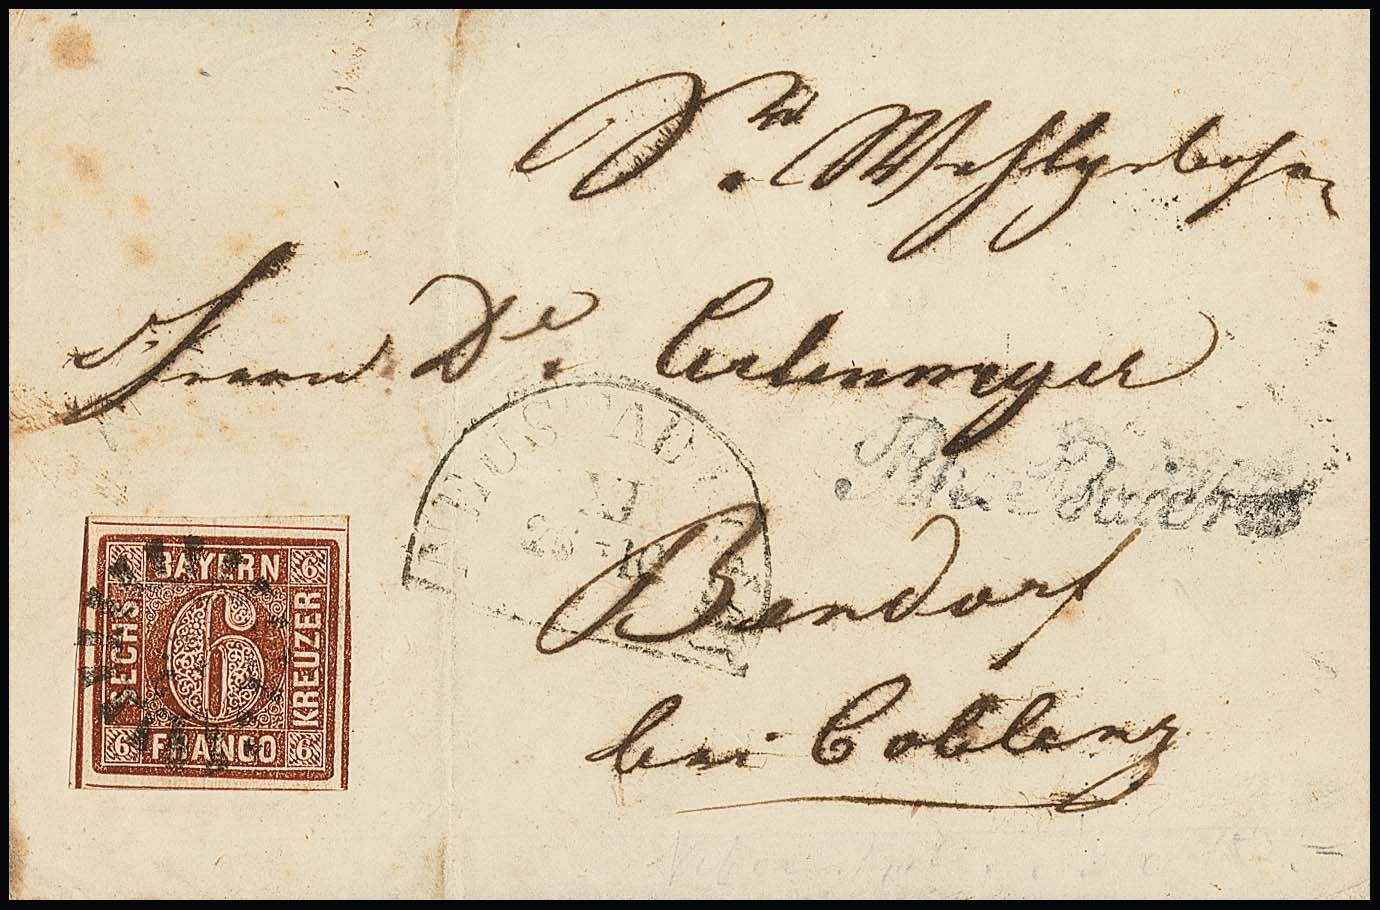 Sr. Wohlgeboren
Herrn Dr. Erlenmeyer
NEUSTADT
XI
Bendorf
bei Coblenz
BAYERN
SECHS
KREUZER
FRANCO
6
6
6
6
6